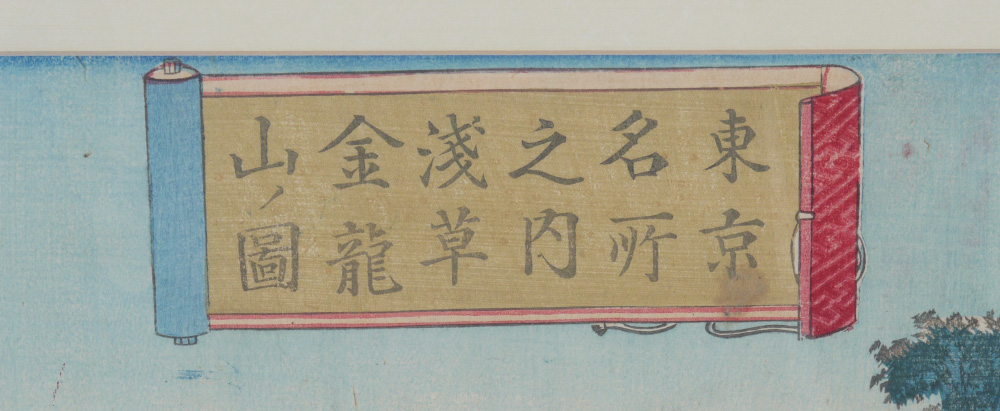 東京
名所
之内
淺草
金龍
山ノ圖